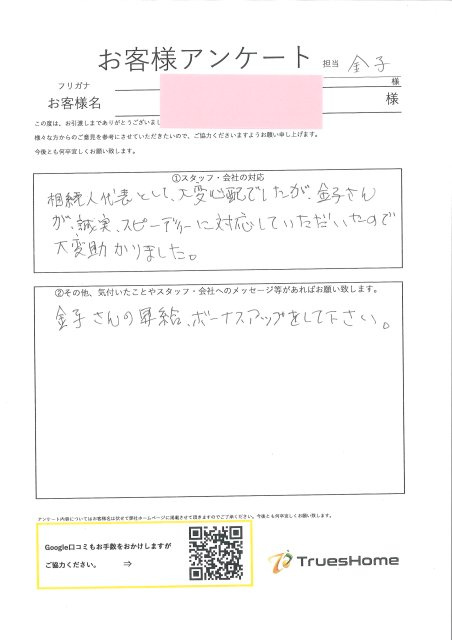 お客様アンケート 担当 金子
フリガナ 様
お客様名 様
この度は、お引渡しまでありがとうございまし
様々な方からのご意見を参考にさせていただきたいので、ご協力くださいますようお願い申し上げます。
今後とも何卒宜しくお願い致します。
①スタッフ・会社の対応
相続人代表として、大変心配でしたが、金子さん
が、誠実、スピーディーに対応していただいたので
大変助かりました。
②その他、気付いたことやスタッフ・会社へのメッセージ等があればお願い致します。
金子さんの昇給、ボーナスアップをして下さい。
アンケート内容についてはお客様名は伏せて弊社ホームページに掲載させて頂きますのでご了承ください。今後とも何卒宜しくお願い致します。
Google口コミもお手数をおかけしますが
ご協力ください。 ⇒
TruesHome